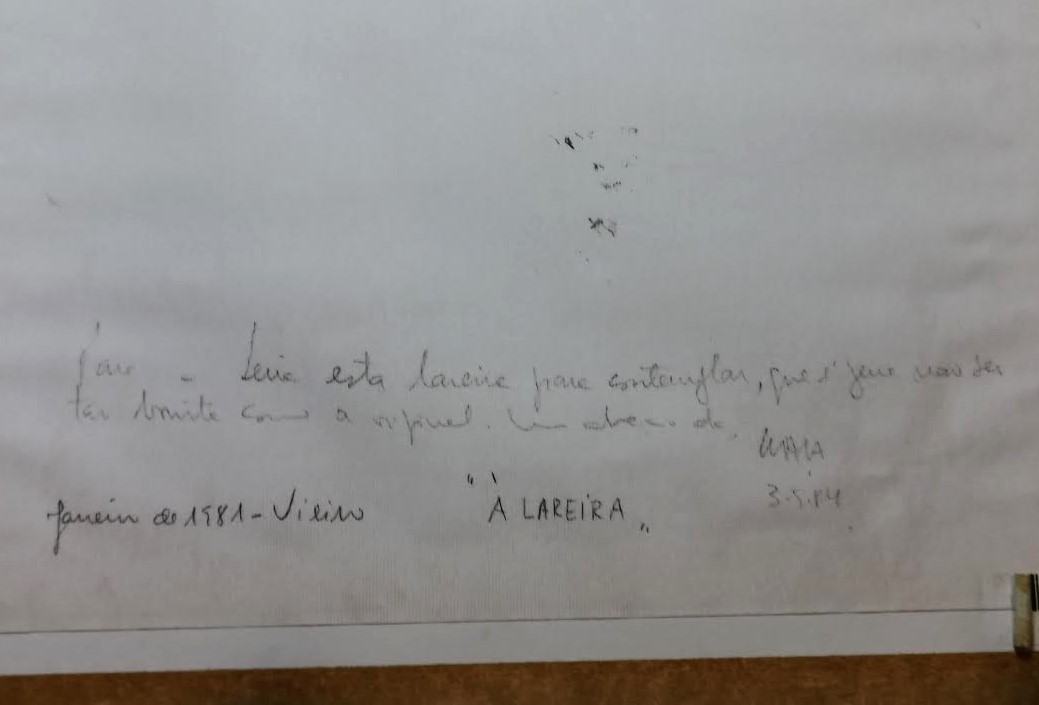 esta lareira para contemplar, que é pena não ser
tão bonita como a original. Um abraço do
MAIA
3.5.84
Janeiro de 1981 - Vieira "À LAREIRA"